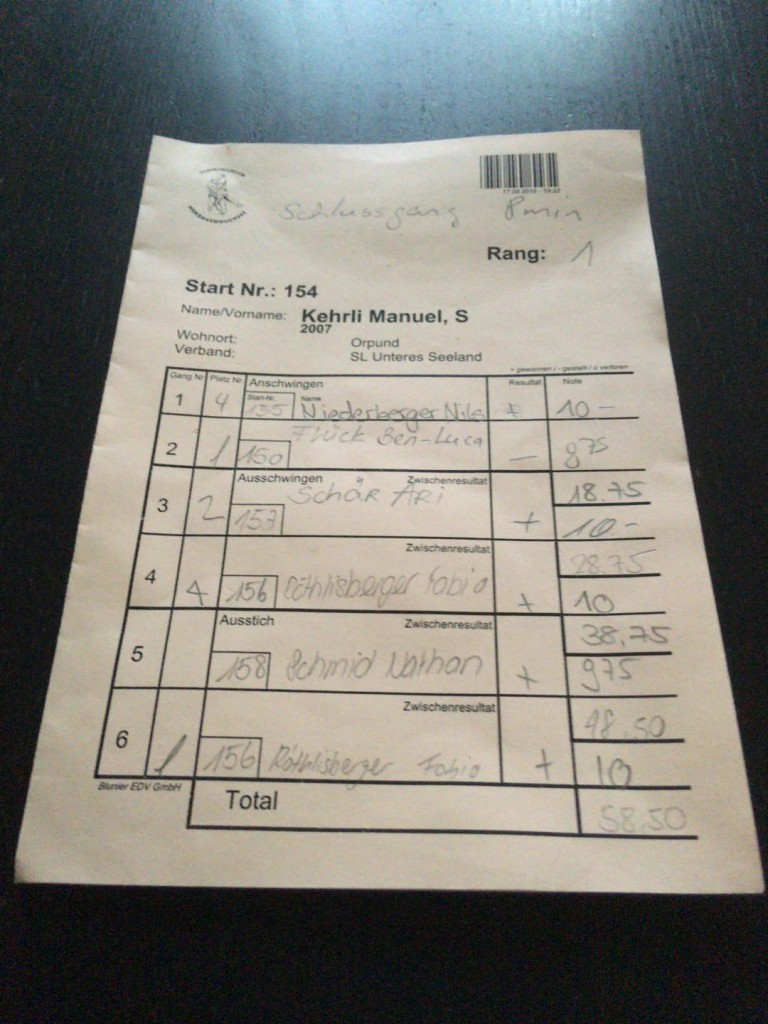 Schlussgang 8min
Rang: 1
Start Nr.: 154
Name/Vorname: Kehrli Manuel, S
2007
Wohnort: Orpund
Verband: SL Unteres Seeland
+ gewonnen / - gestellt / o verloren
Gang Nr Platz Nr Anschwingen Resultat Note
Start-Nr. Name
1 4 155 Niederberger Nils + 10 -
2 1 150 Flück Ben-Luca - 8 75
Ausschwingen Zwischenresultat 18.75
3 2 157 Schär Ari + 10.-
Zwischenresultat 28.75
4 4 156 Röthlisberger Fabio + 10
Ausstich Zwischenresultat 38,75
5 158 Schmid Nathan + 975
Zwischenresultat 48.50
6 1 156 Röthlisberger Fabio + 10
Blunier EDV GmbH
Total 58.50